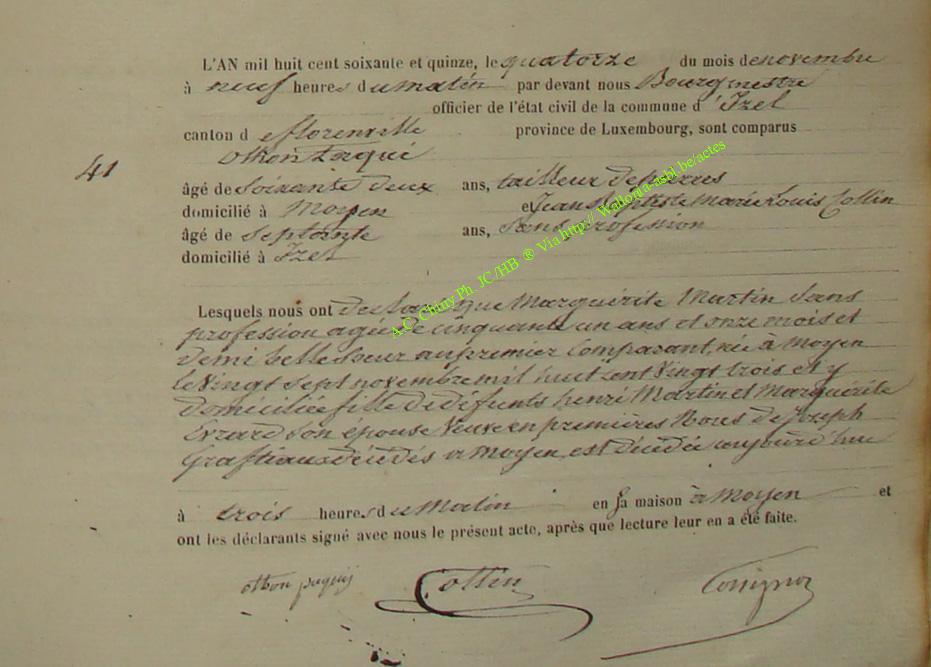 L'AN mil huit cent soixante et quinze, le quatorze du mois de novembre
à neuf heures du matin par devant nous Bourgmestre
officier de l'état civil de la commune d'Izel
canton de florenville province de Luxembourg, sont comparus
othon
41
âgé de Soixante deux ans, tailleur de pierres
domicilié à Moyen et Jean Baptiste Marie Louis Collin
âgé de Septante ans, Sans profession
domicilié à Izel
Lesquels nous ont déclaré que Marguerite Martin Sans
profession agée de cinquante un ans et onze mois et
demi belle Soeur au premier Comparant, née à Moyen
le vingt sept novembre mil huit cent vingt trois et y
domiciliée fille de défunts henri Martin et Marguerite
Evrard Son épouse Veuve en premières Noces de Joseph
décédés à Moyen, est décédée aujourd'hui
à trois heures du Matin en sa maison à Moyen et
ont les déclarants signé avec nous le présent acte, après que lecture leur en a été faite.
othon Collin
A.C. Chiny Ph JC/HB ® Via http:// Wallonia-asbl.be/actes